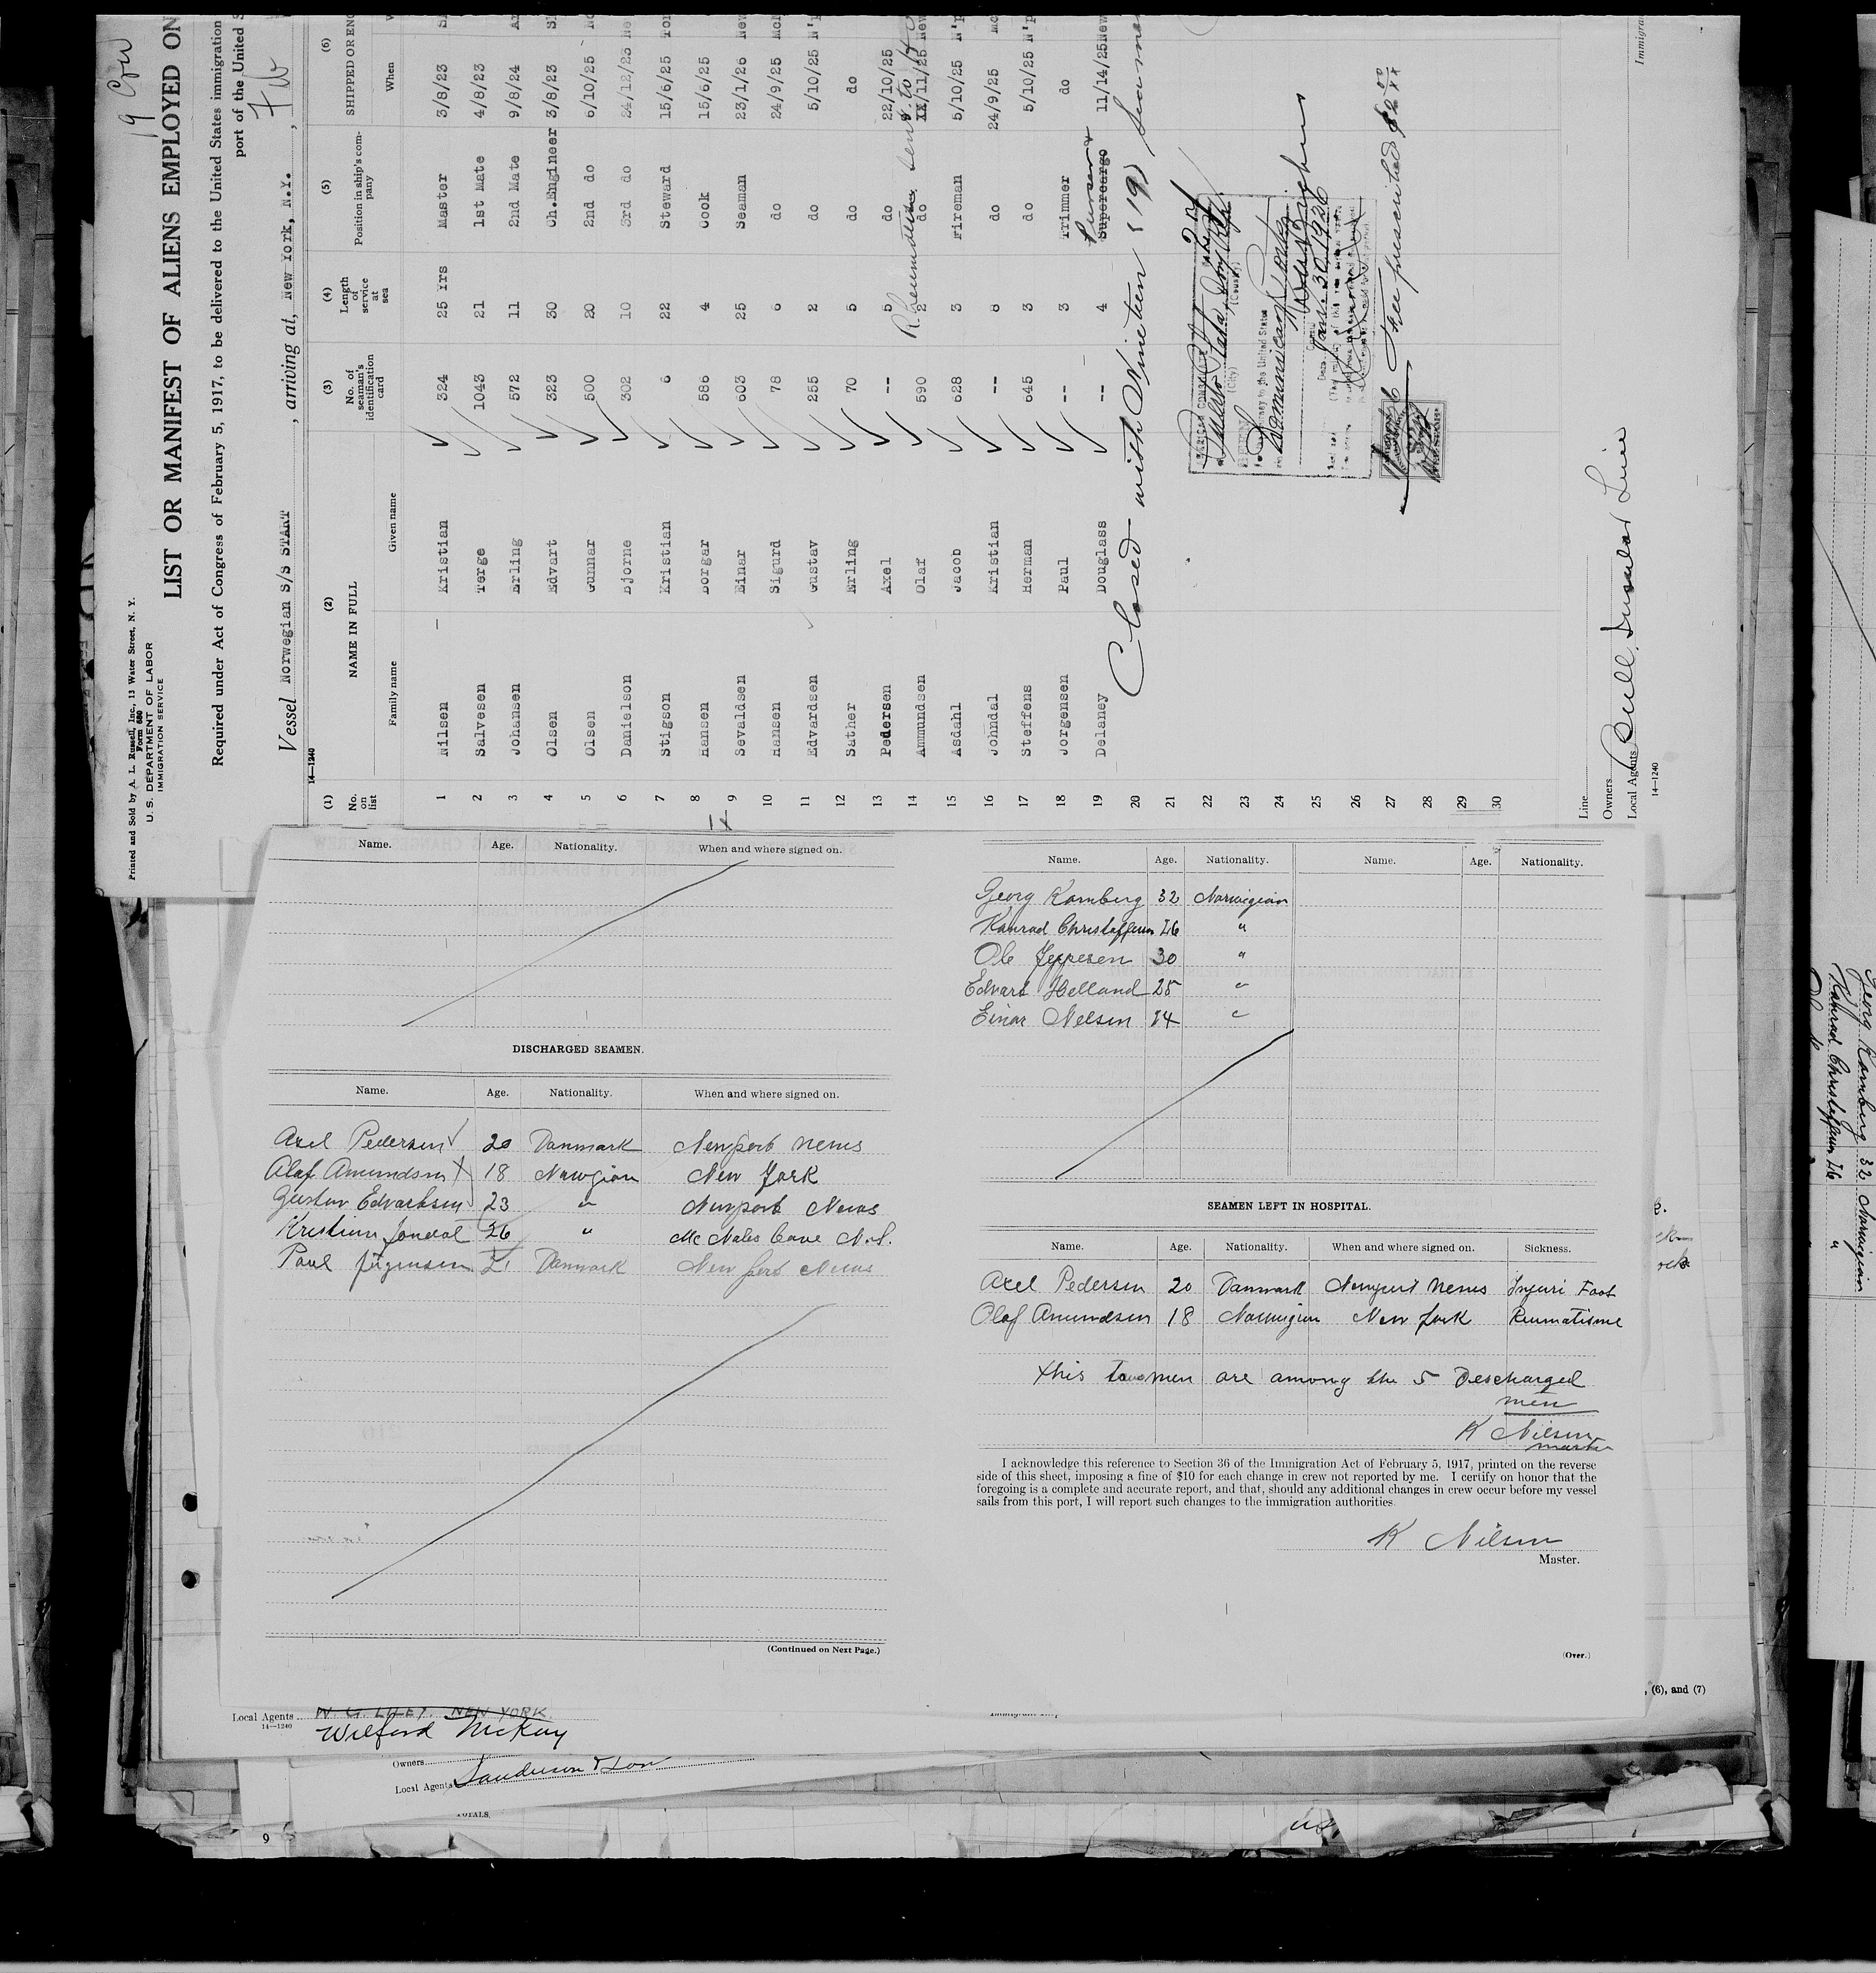 19 Crew
Printed and Sold by A. L. Russell, Inc., 13 Water Street, N. Y.
Form 680
U. S. DEPARTMENT OF LABOR
IMMIGRATION SERVICE
LIST OR MANIFEST OF ALIENS EMPLOYED ON
Required under Act of Congress of February 5, 1917, to be delivered to the United States immigration
port of the United S
Vessel Norwegian S/S START, arriving at, New York, N.Y.,
14—1240
(1) (2) (3) (4) (5) (6)
No. on list NAME IN FULL No. of seaman's identification card Length of service at sea Position in ship's company SHIPPED OR ENG
Family name Given name When
1 Nilsen Kristian 324 25 Yrs Master 3/8/23
2 Salvesen Terge 1043 21 1st Mate 4/8/23
3 Johansen Erling 572 11 2nd Mate 9/8/24
4 Olsen Edvart 323 30 Ch.Engineer 3/8/23
5 Olsen Gunnar 500 20 2nd do 6/10/25
6 Danielson Bjorne 302 10 3rd do 24/12/23 Ne
7 Stigson Kristian 6 22 Steward 15/6/25
8 Hansen Borgar 586 4 Cook 15/6/25
9 Sevaldsen Einar 603 25 Seaman 23/1/26 New
10 Hansen Sigurd 78 6 do 24/9/25 McN
11 Edvardsen Gustav 255 2 do 5/10/25 N'p
12 Sather Erling 70 5 do do
13 Pedersen Axel -- 5 do 22/10/25
14 Ammundsen Olaf 590 2 do XX/11/25 New
15 Asdahl Jacob 628 3 Fireman 5/10/25 N'p
16 Johndal Kristian -- 8 do 24/9/25 Mc
17 Steffens Herman 645 3 do 5/10/25 N'p
18 Jorgensen Paul -- 3 Trimmer do
19 Delaney Douglass -- 4 Supercargo 11/14/25 New
Purser
sent to
20
Closed with Nineteen (19) Seamen
21
22
23
24
25
26
27
28
29
30
AMERICAN CONSULATE
(City) (County)
SEEN
journey to the United States
Jan. 30 1926
Fee prescribed $2 00
Line
Owners
Local Agents Bull Insular Line
14—1240
Immigran
Name. Age. Nationality. When and where signed on.
DISCHARGED SEAMEN.
Name. Age. Nationality. When and where signed on.
Axel Pedersen 20 Danmark Newport News
Alaf Amundsen 18 Nawgian New York
Gustav Edvardsen 23 " Newport News
Kristian Jondal 26 " Mc Nales Cave N.S.
Paul Jügensen 21 Danmark New port News
(Continued on Next Page.)
Name. Age. Nationality. Name. Age. Nationality.
Georg Kamberg 32 Norwigian
Konrad Christoffersen 46 "
Ole Jeppesen 30 "
Edvard Helland 25 "
Einar Nelsen 24 "
SEAMEN LEFT IN HOSPITAL.
Name. Age. Nationality. When and where signed on. Sickness.
Axel Pedersen 20 Danmark Newport News Injuri Foot
Olaf Amundsen 18 Norwigian New York Reumatisme
this two men are among the 5 Descharged
men
K Nilsen
master
I acknowledge this reference to Section 36 of the Immigration Act of February 5, 1917, printed on the reverse
side of this sheet, imposing a fine of $10 for each change in crew not reported by me. I certify on honor that the
foregoing is a complete and accurate report, and that, should any additional changes in crew occur before my vessel
sails from this port, I will report such changes to the immigration authorities.
K Nilsen
Master.
(Over.)
, (6), and (7)
Local Agents W. G. LILEY. NEW YORK.
14—1240
Wilford McKay
Owners
Local Agents Sanderson & Son
TOTALS.
9
Georg Kamberg 32 Norwigian
Konrad Christoffersen 46 "